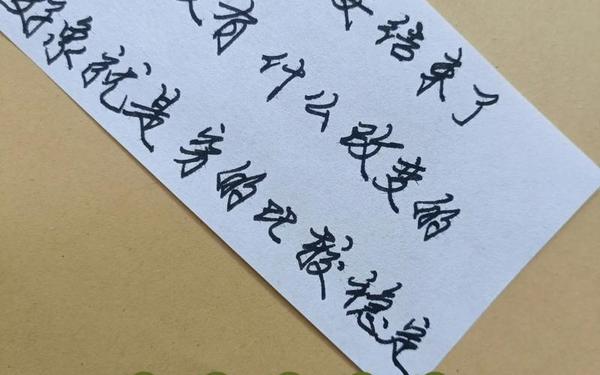 结束了
没有什么改变的
好象就是穷的比较稳定